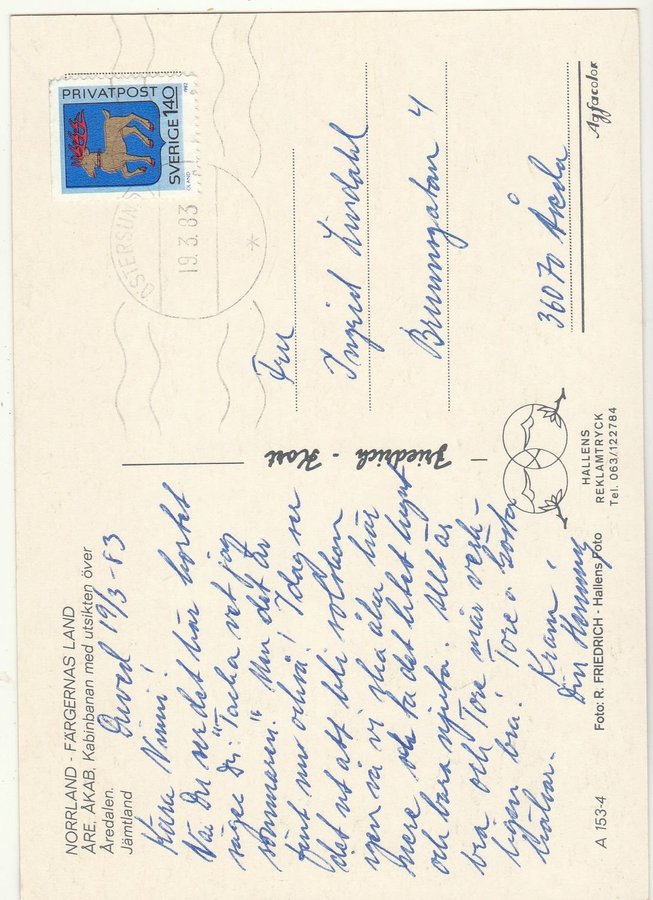 NORRLAND - FÄRGERNAS LAND
ÅRE, ÅKAB, Kabinbanan med utsikten över
Åredalen.
Jämtland
Duved 19/3-83
Kära Ninni!
När Du ser det här kortet
säger Du: "Tacka vet jag
sommaren." Men det är
fint nu också! Idag ser
det ut att bli solsken
igen så vi ska åka här
mere och ta det litet lugnt
och bara njuta. Allt är
bra och Tore mår verk-
ligen bra! Tore o Gösta
hälsar.
Kram!
Din Henning
A 153-4
Foto: R. FRIEDRICH - Hallens Foto
Friedrich - Kort
HALLENS
REKLAMTRYCK
Tel. 063/122784
PRIVATPOST
SVERIGE 140
ÖLAND
1982
ÖSTERSUND
19.3.83
Fru
Ingrid Lindahl
Brunnsgatan 4
36070 Åseda
Agfacolor